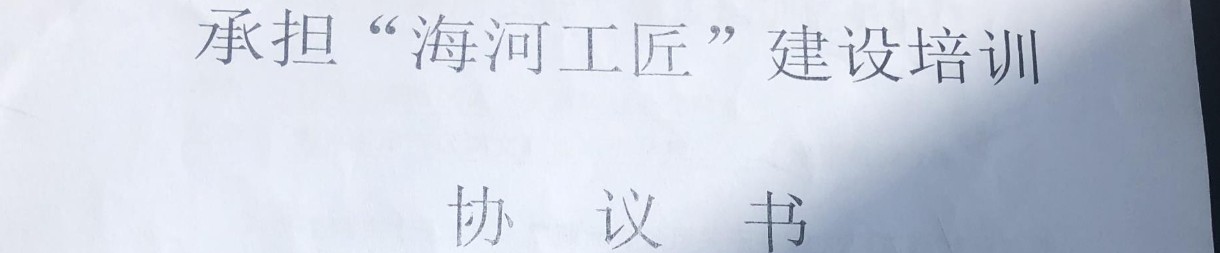 承担“海河工匠”建设培训
协 议 书